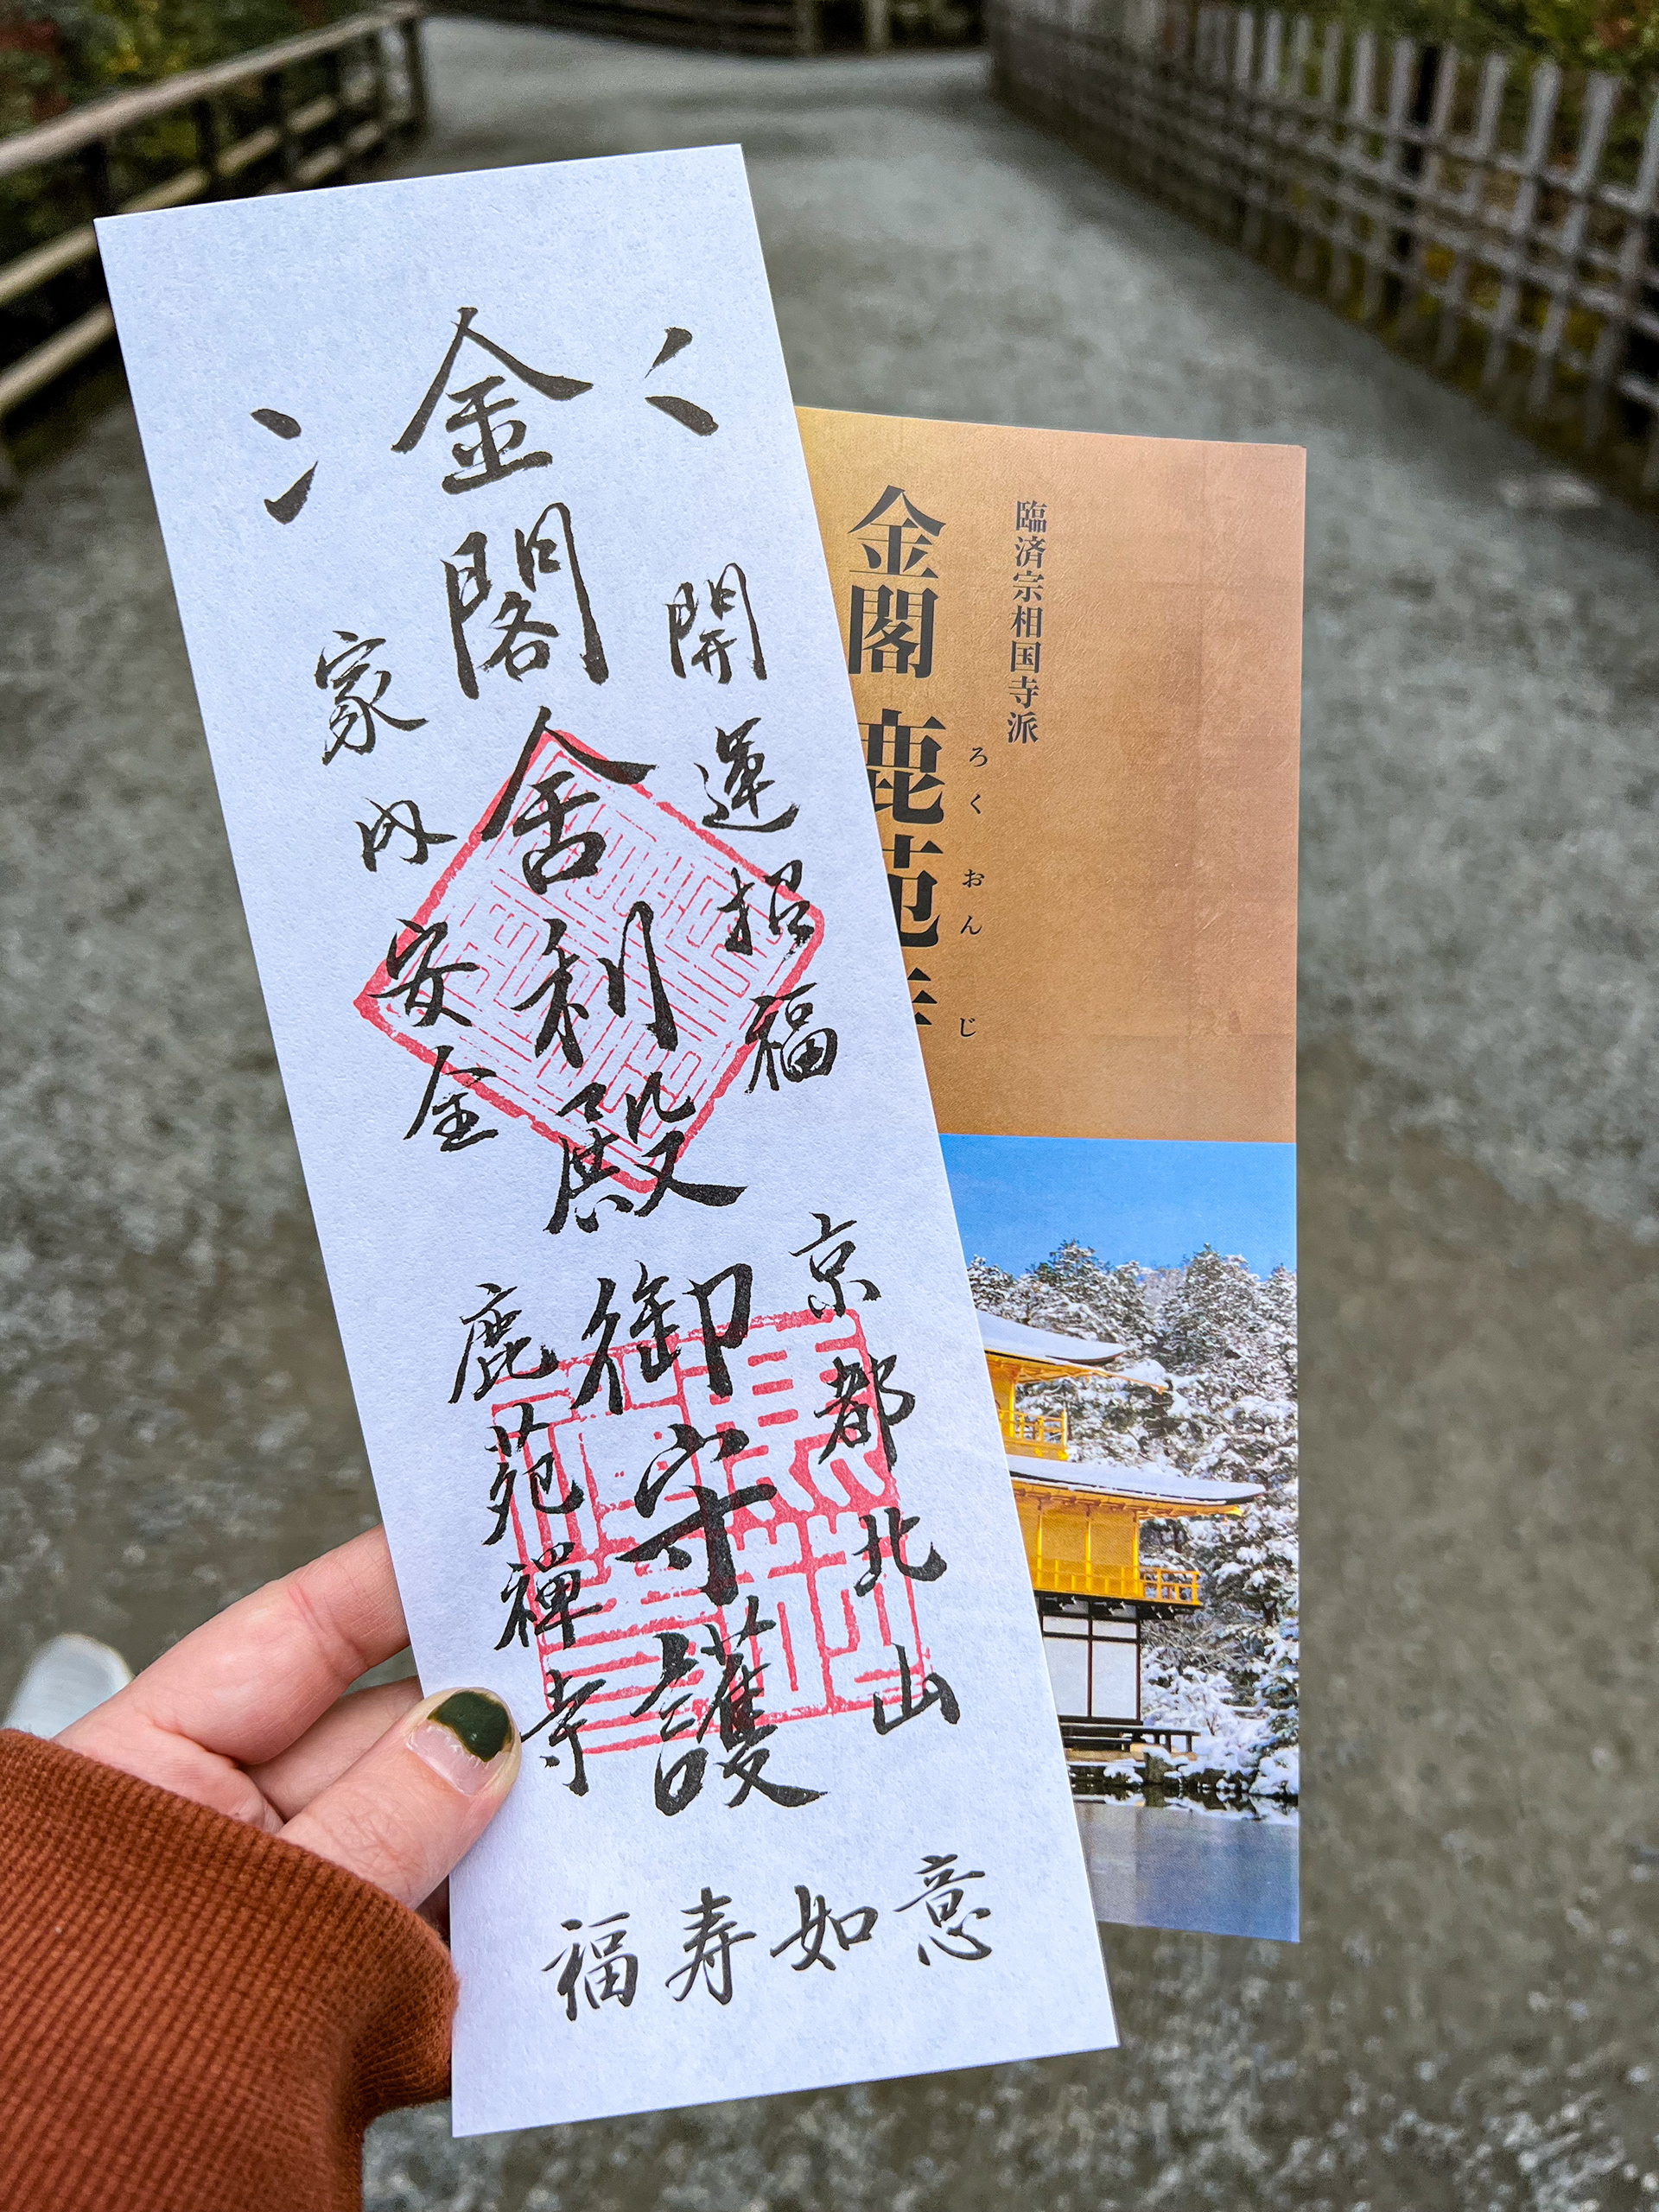 開運招福
京都北山
金閣舎利殿御守護
家内安全
鹿苑禅寺
福寿如意
臨済宗相国寺派
金閣 鹿苑寺
ろくおんじ